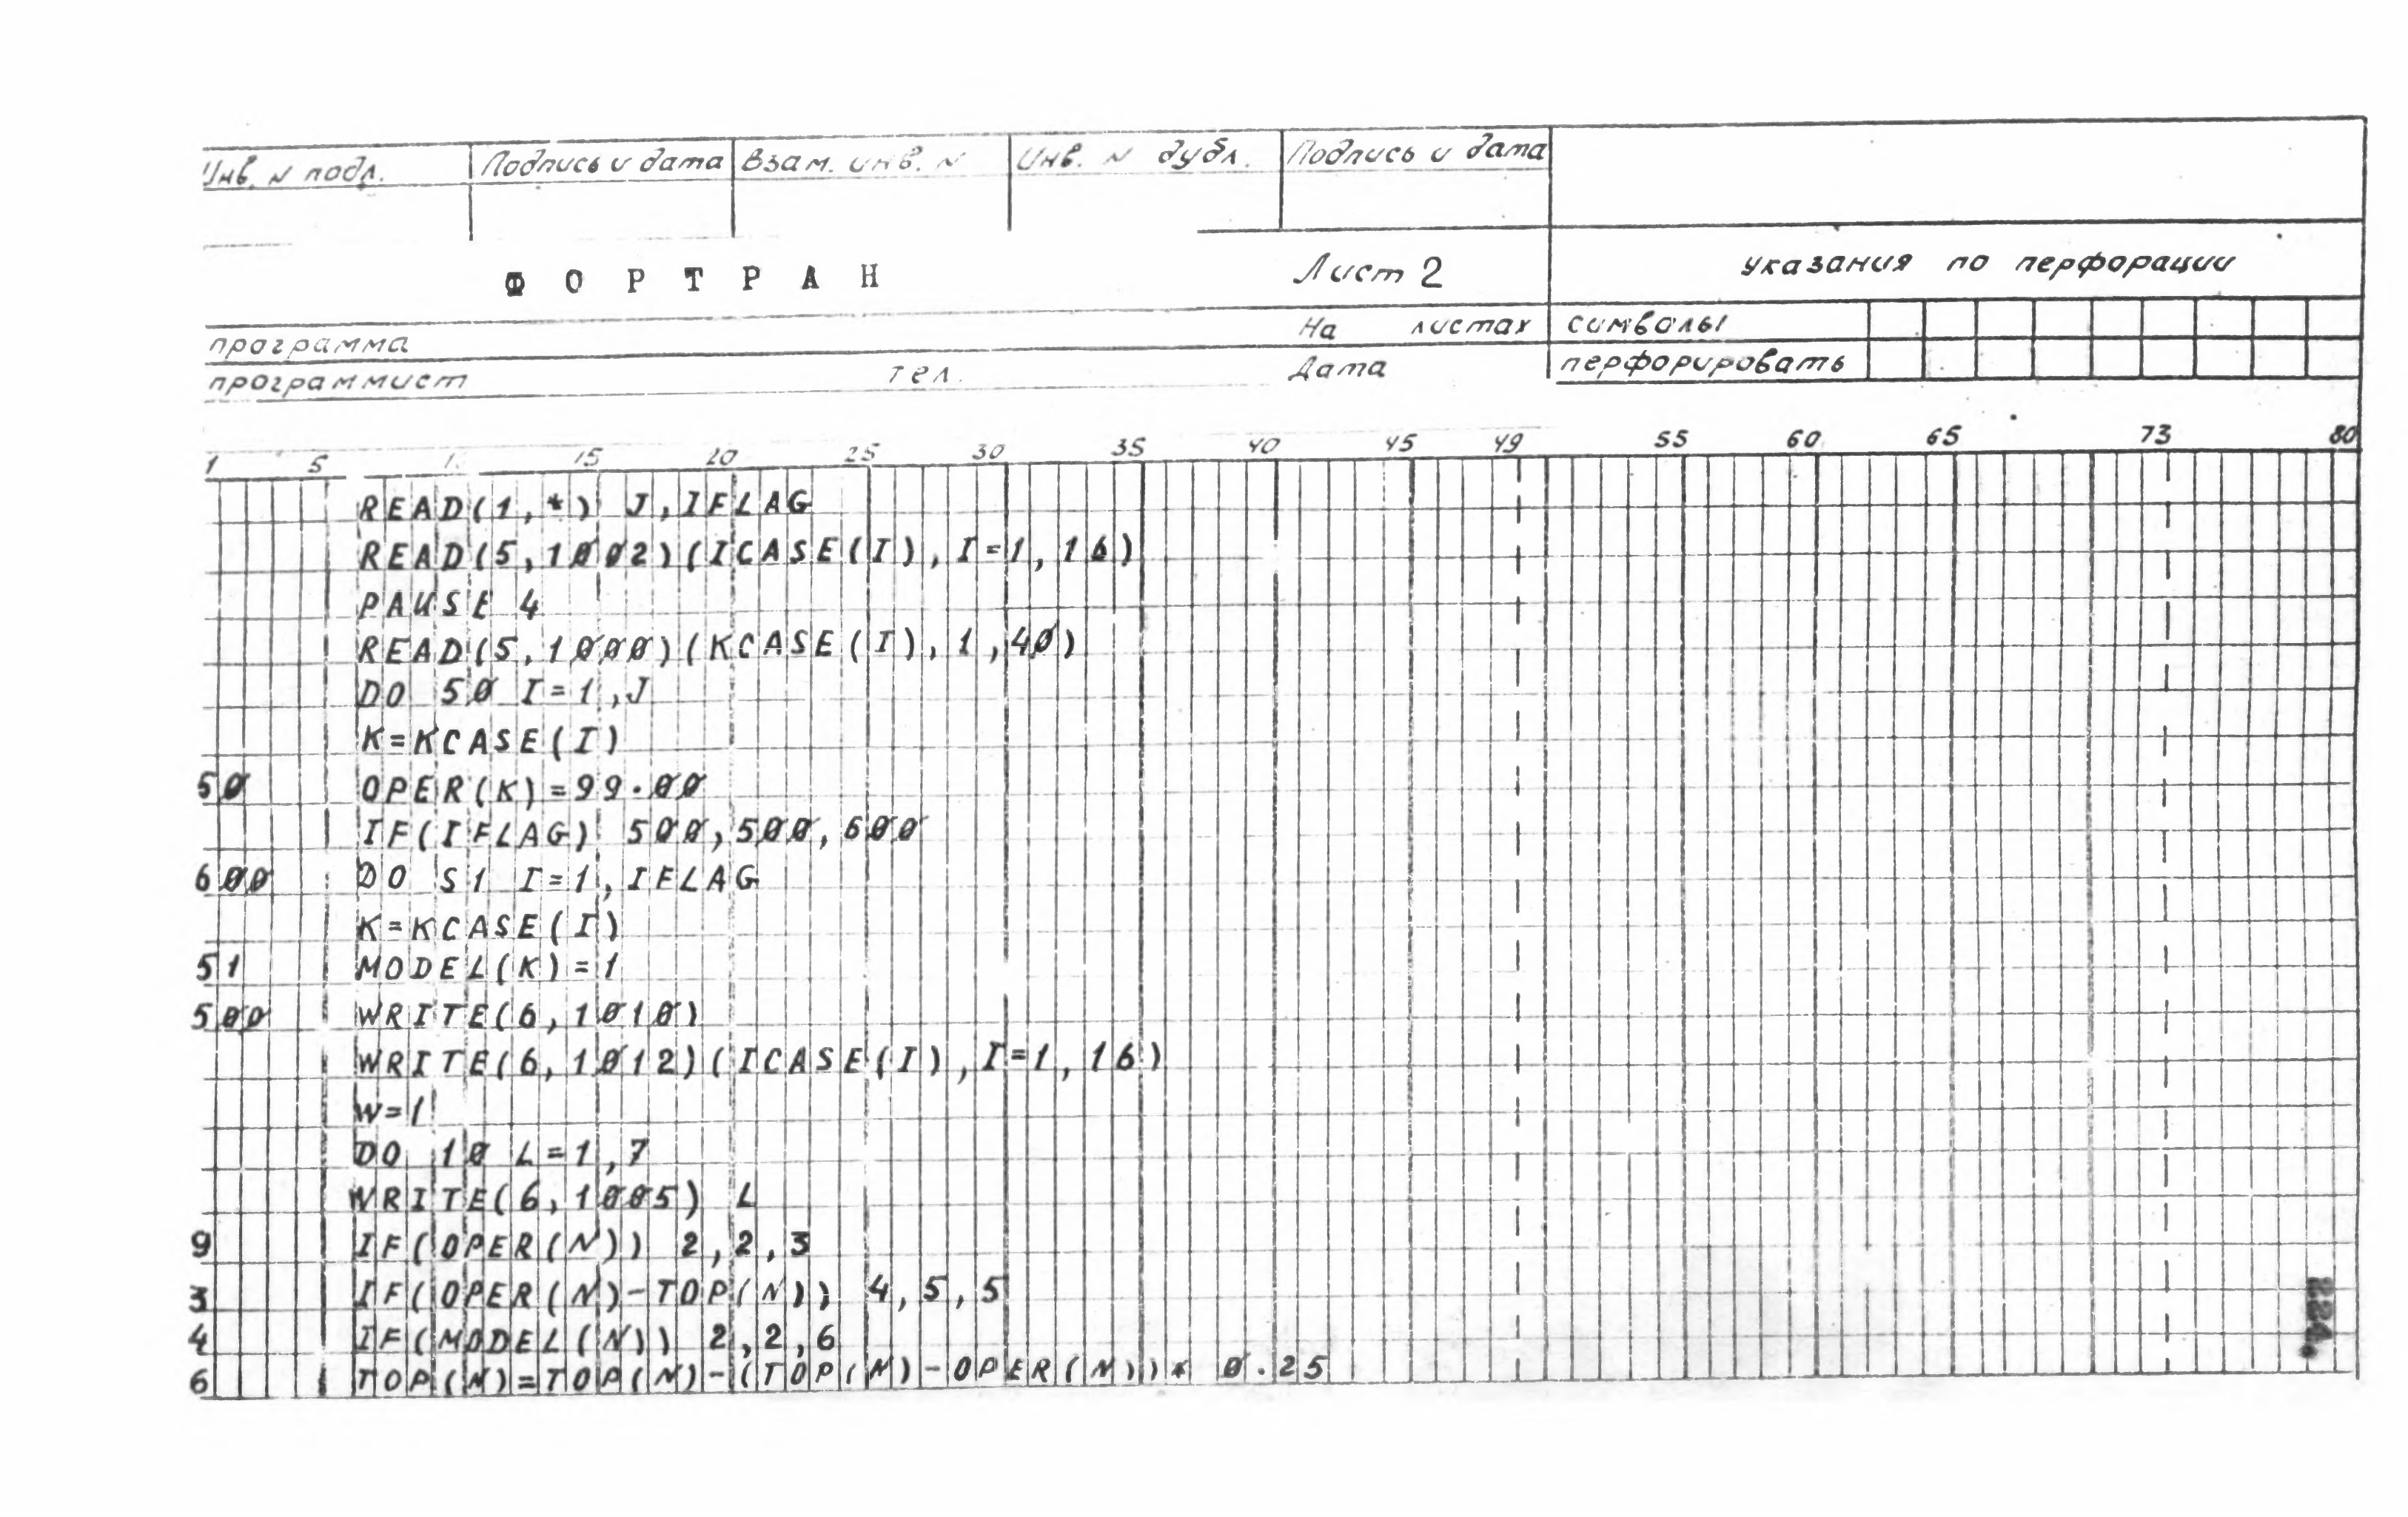 Инв. N подл. Подпись и дата Взам. инв. N Инв. N дубл. Подпись и дата
ФОРТРАН Лист 2 указания по перфорации
программа На листах символы
программист тел. Дата перфорировать
1 5 10 15 20 25 30 35 40 45 49 55 60 65 73 80
READ(1,*) J,IFLAG
READ(5,1002)(ICASE(I),I=1,16)
PAUSE 4
READ(5,1000)(KCASE(I),1,40)
DO 50 I=1,J
K=KCASE(I)
50 OPER(K)=99.00
IF(IFLAG) 500,500,600
600 DO S1 I=1,IFLAG
K=KCASE(I)
51 MODEL(K)=1
500 WRITE(6,1010)
WRITE(6,1012)(ICASE(I),I=1,16)
W=1
DO 10 L=1,7
WRITE(6,1005) L
9 IF(OPER(N)) 2,2,3
3 IF(OPER(N)-TOP(N)) 4,5,5
4 IF(MODEL(N)) 2,2,6
6 TOP(N)=TOP(N)-(TOP(N)-OPER(N))* 0.25